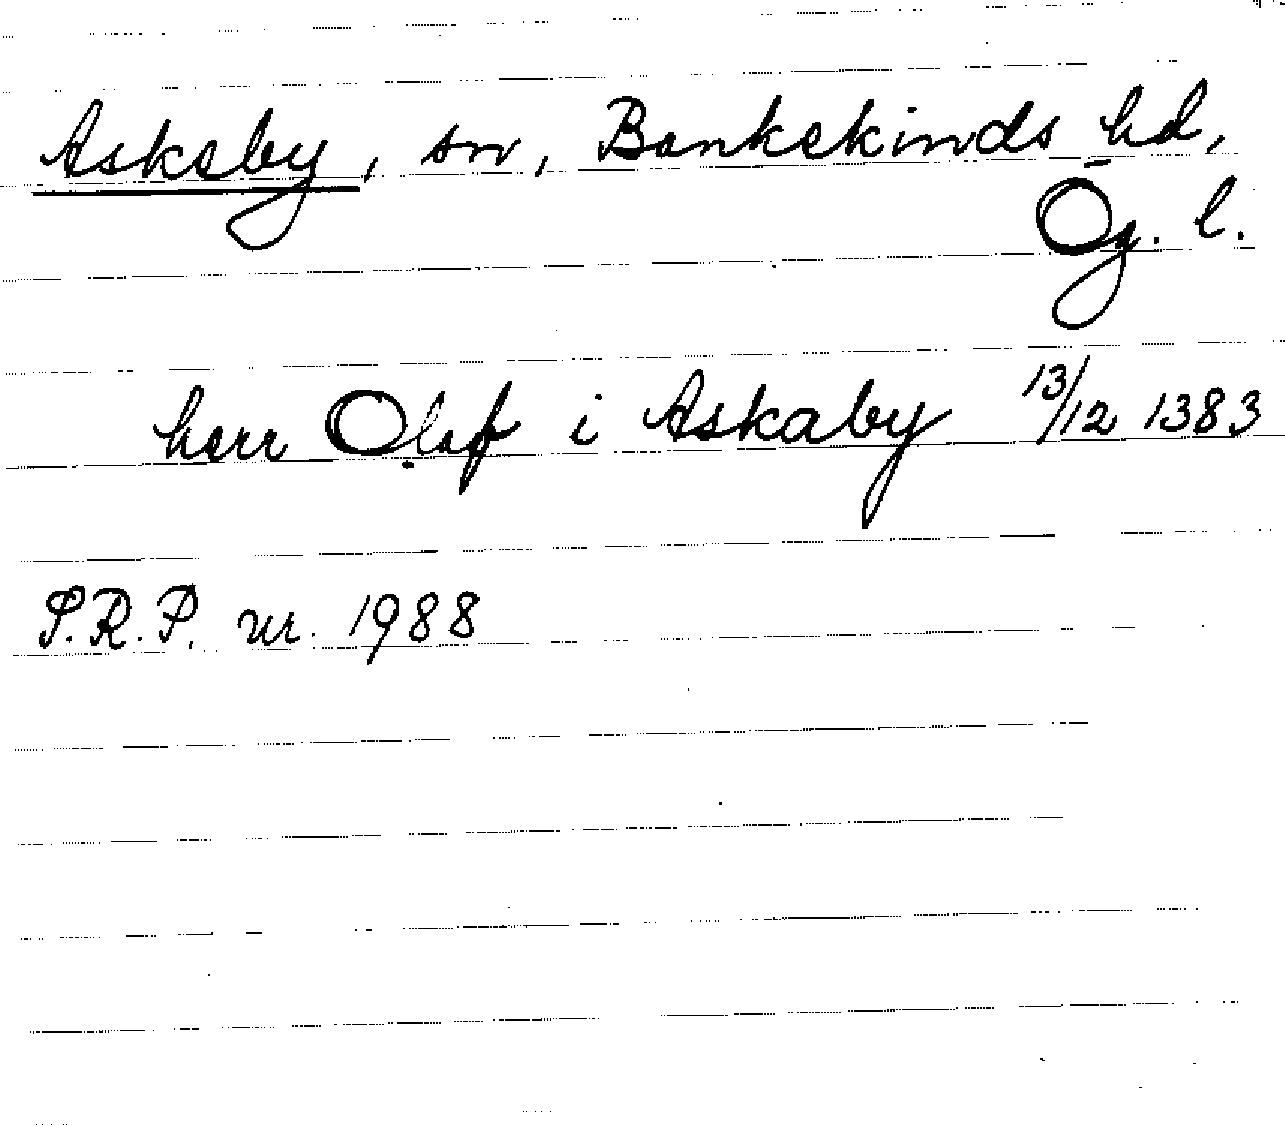 Askeby, sn, Bankekinds hd,
Ög. l.
herr Olaf i Askaby 13/12 1383
P.R.P. nr. 1988